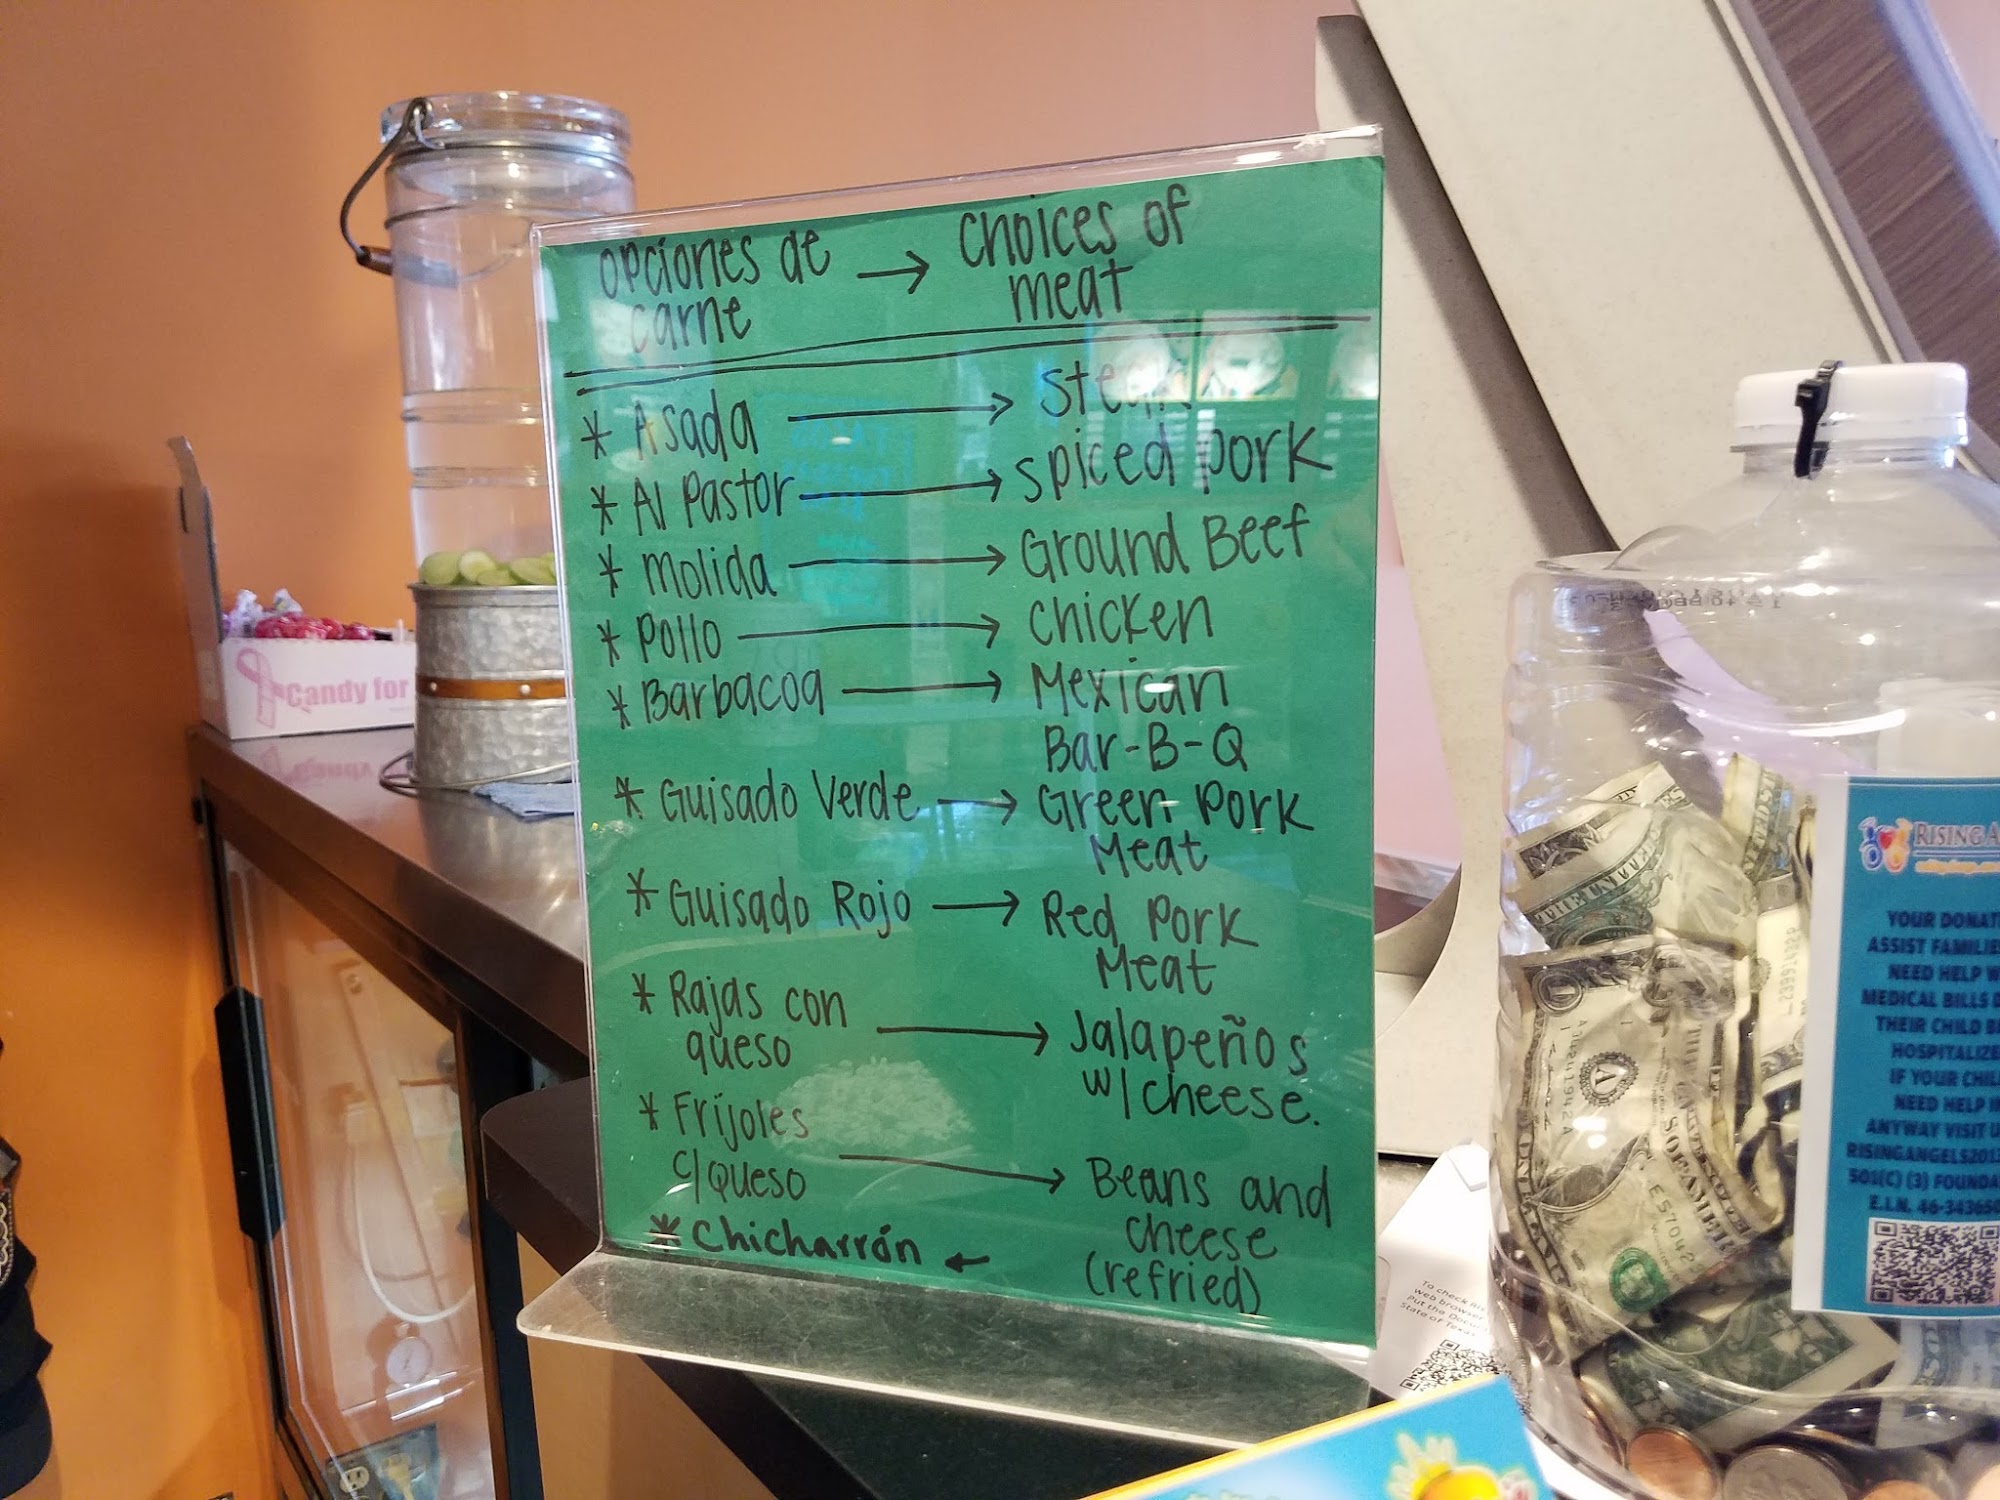 opciones de carne → choices of meat
* Asada → steak
* Al Pastor → spiced pork
* Molida → Ground Beef
* Pollo → chicken
* Barbacoa → Mexican Bar-B-Q
* Guisado Verde → Green Pork Meat
* Guisado Rojo → Red Pork Meat
* Rajas con queso → Jalapeños w/cheese.
* Frijoles c/queso → Beans and cheese (refried)
* Chicharrón ←
Candy for
RISING
YOUR
ASSIST
NEED HELP
MEDICAL BILLS
THEIR CHILD
IF YOUR
NEED HELP
ANYWAY VISIT
501(C) (3)
E.I.N.
To check
web browser
Put the
State of Texas